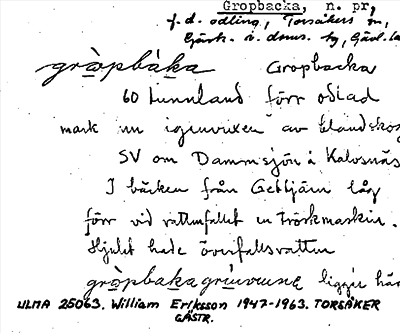 Gropbacka, n. pr,
f.d. odling, Torsåkers sn,
Gästr. ö. doms. hg, Gävl. lä
gròpbáka, Gropbacka
60 tunnland förr odlad
mark nu igenvuxen av blandskog
SV om Dammsjön å Kalvsnäs
I bäcken från Gettjärn låg
förr vid vattenfallet en tröskmaskin.
Hjulet hade överfallsvatten
gròpbakagrúvuna ligger här
ULMA 25063. William Eriksson 1947-1963. TORSÅKER
GÄSTR.